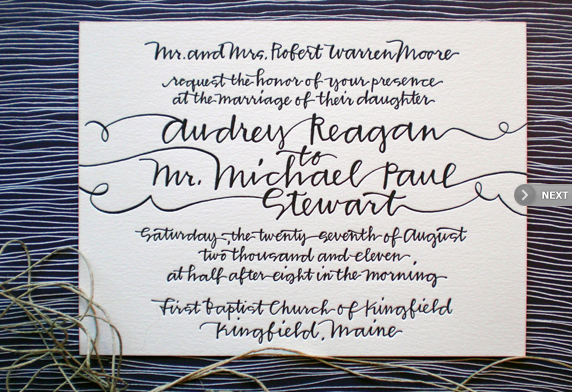 Mr. and Mrs. Robert Warren Moore
request the honor of your presence
at the marriage of their daughter
Audrey Reagan
to
Mr. Michael Paul
Stewart
Saturday, the twenty-seventh of August
two thousand and eleven
at half after eight in the morning
First Baptist Church of Kingfield
Kingfield, Maine
NEXT